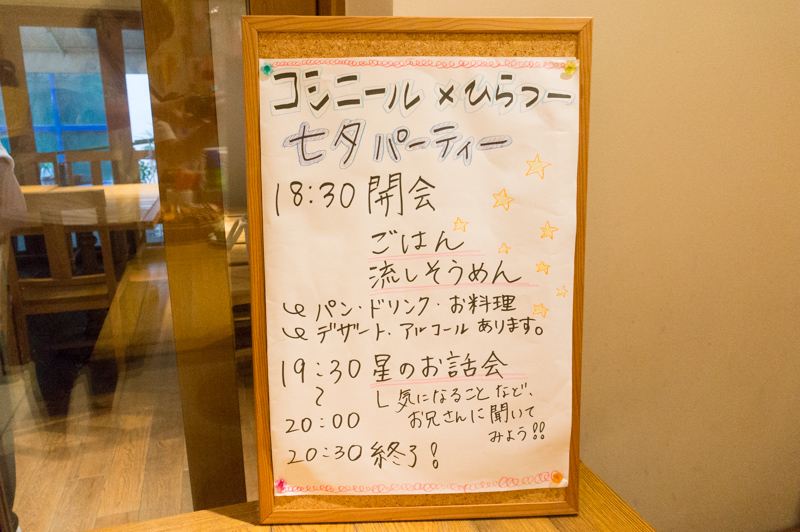 コシニール × ひらつー
七夕パーティー
18:30 開会
ごはん
流しそうめん
↪ パン・ドリンク・お料理
↪ デザート・アルコールあります。
19:30 星のお話会
〜 └ 気になることなど、
20:00 お兄さんに聞いて
みよう!!
20:30 終了!